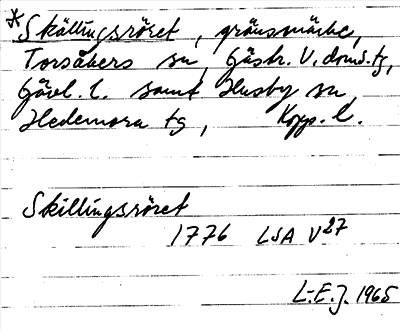 *Skällingsröret, gränsmärke,
Torsåkers sn, Gästr. V. doms. tg,
Gävl. l. samt Husby sn
Hedemora tg, Kopp. l.
Skillingsröret
1776 LSA V27
L-E.J. 1965